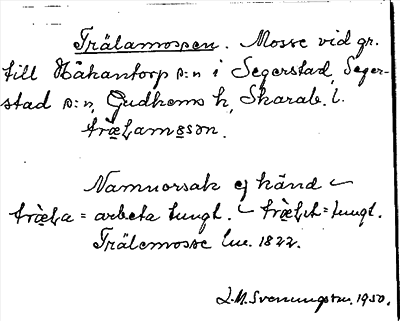 Trälamossen. Mosse vid gr.
till Håkantorp s:n i Segerstad, Seger-
stad s:n, Gudhems h, Skarab. l.
träɫamɵsən.
Namnorsak ej känd –
träɫa = arbeta tungt. – träɫit = tungt.
Trälemosse Lm. 1822.
1950.